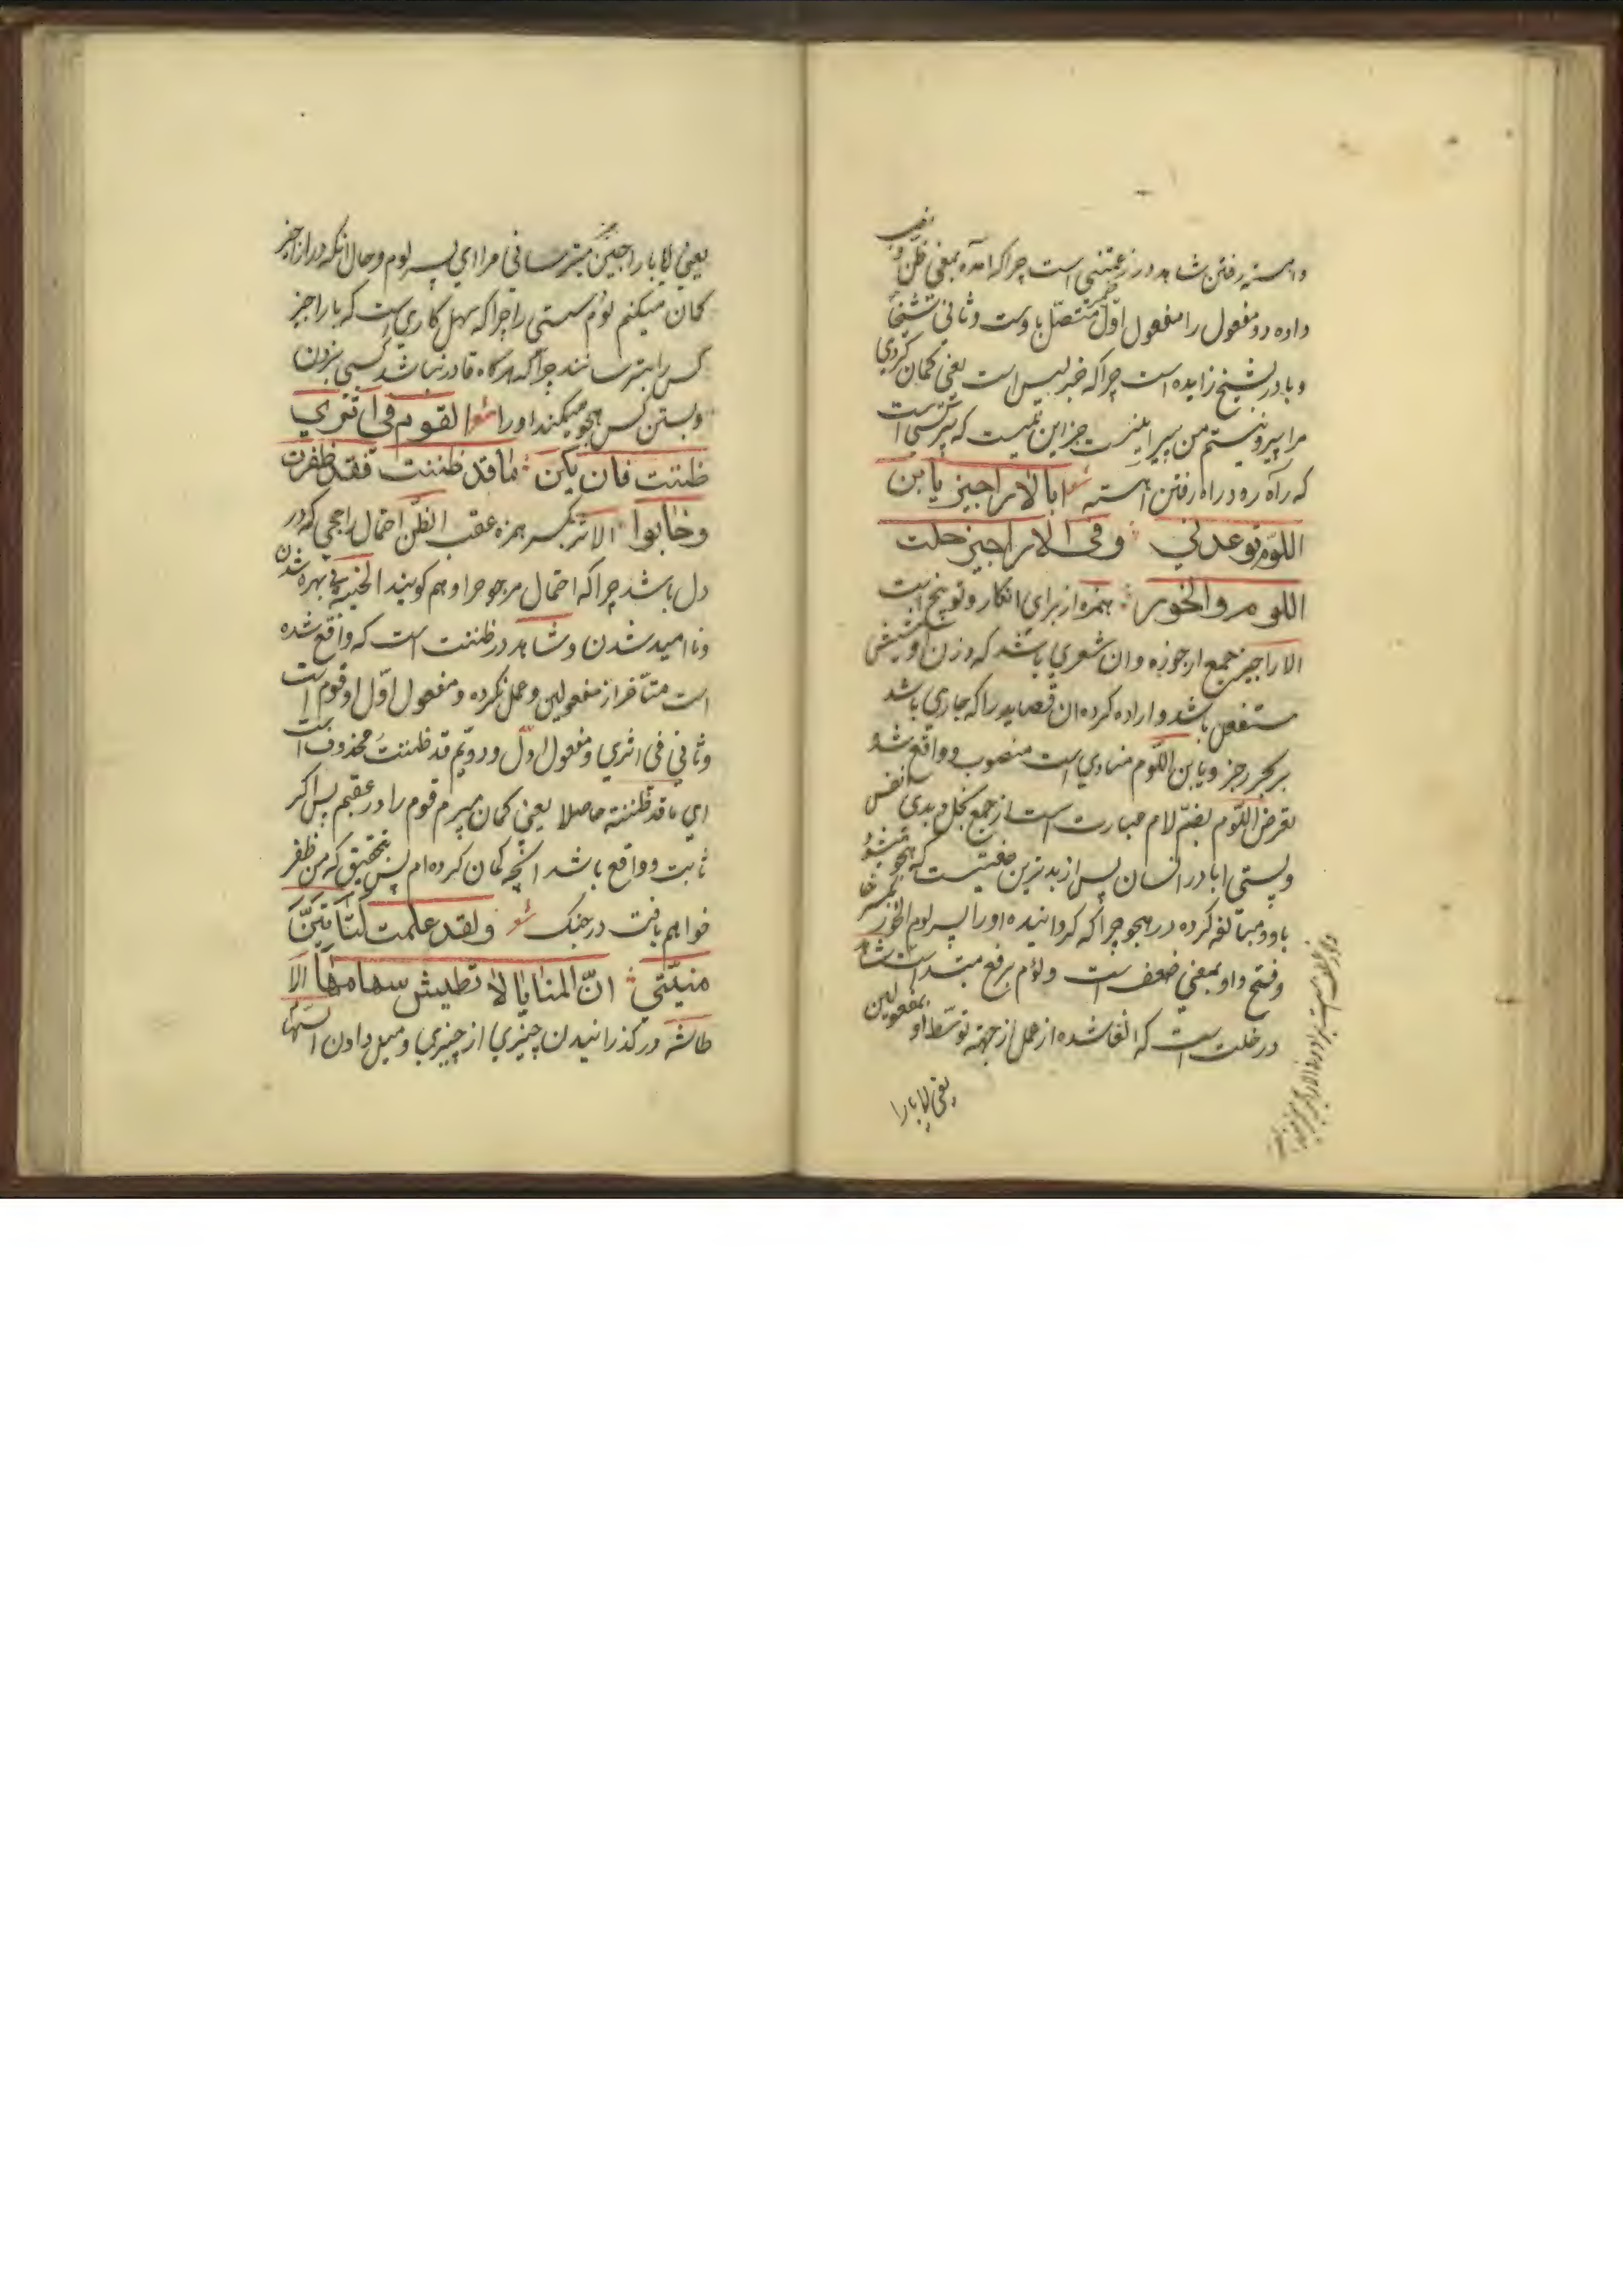 واهسته رفتن شاهد در زعمتنی است چراکه امده بمعنی ظن و نصب
داده دو مفعول را مفعول اوّل ضمیر متصّل باوست و ثانی شیخا
و با در بشیخ زایده است چراکه خبر لیس است یعنی کمان کردی
مرا پیر و نیستم من پیر اینست جز این نیست که پیر کسی است
که راه رود راه رفتن اهسته شعر ابالاراجیز یا بن
اللوم توعدنی وفی الاراجیز خلت
اللوم والخور همزه از برای انکار و توبیخ است
الاراجیز جمع ارجوزه وان شعری باشد که وزن او شش
مستفعلن باشد و اراده کرده ان قصاید را که جاری باشد
بر بحر رجز و یا بن اللوم منادی است منصوب و واقع شده
بعرض اللوم بضمّ لام عبارت است از جمع بخل و بدی نفس
و پستی ابا در انسان پس از بدترین صفتیست که هجو میشود
باو و مبالغه کرده در هجو چراکه کردانیده او را پسر لوم الخور
وفتح واو بمعنی ضعف است و لؤم برفع مبتدا است شاهد
در خلت است که الغا شده از عمل از جهة توسّط او بمفعولین
یعنی ایا بارا
یعنی ایا باراجیز میترسانی مرا ای پسر لوم وحال انکه در اراجیز
کمان میکنم لوم سستی را چراکه سهل کاری است که باراجیز
کسی را بترسانند چراکه هرکاه قادر نباشد کسی بزدن
وبستن کس هجو میکند او را شعر القوم فی اثری
ظننت فان یکن ما قد ظننت فقد ظفرت
وخابوا الاثر بکسر همزه عقب الظّن احتمال راجحی که در
دل باشد چراکه احتمال مرجوح را وهم کویند الخیبه بی بهره شدن
ونا امید شدن و شاهد در ظننت است که واقع شده
است متأخر از مفعولین وعمل نکرده و مفعول اوّل او قوم است
وثانی فی اثری و مفعول اول و دویم قد ظننت محذوف است
ای ما قد ظننته حاصلا یعنی کمان میبرم قوم را در عقبم پس اکر
ثابت و واقع باشد انچه کمان کرده ام پس بتحقیق که من ظفر
خواهم یافت در جنک شعر ولقد علمت لتأتینّ
منیّتی انّ المنایا لا تطیش سهامها الا
طاشه در کذرانیدن چیزی از چیزی و میل دادن السهام